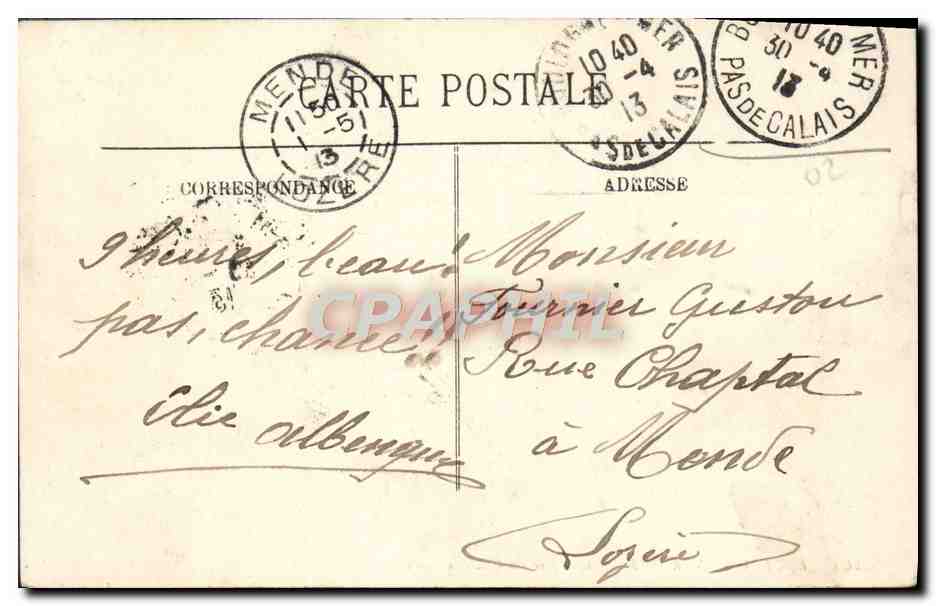 CARTE POSTALE
MENDE
11 30
1 -5
13
LOZERE
10 40
30 -4
13
PAS DE CALAIS
10 40
30 -4
13
MER
PAS DE CALAIS
02
CORRESPONDANCE
ADRESSE
9 heures, beau!
pas, chance!!
Elie Albengue
Monsieur
Fournier Gustou
Rue Chaptal
à Mende
(Lozère)
CPAPHIL